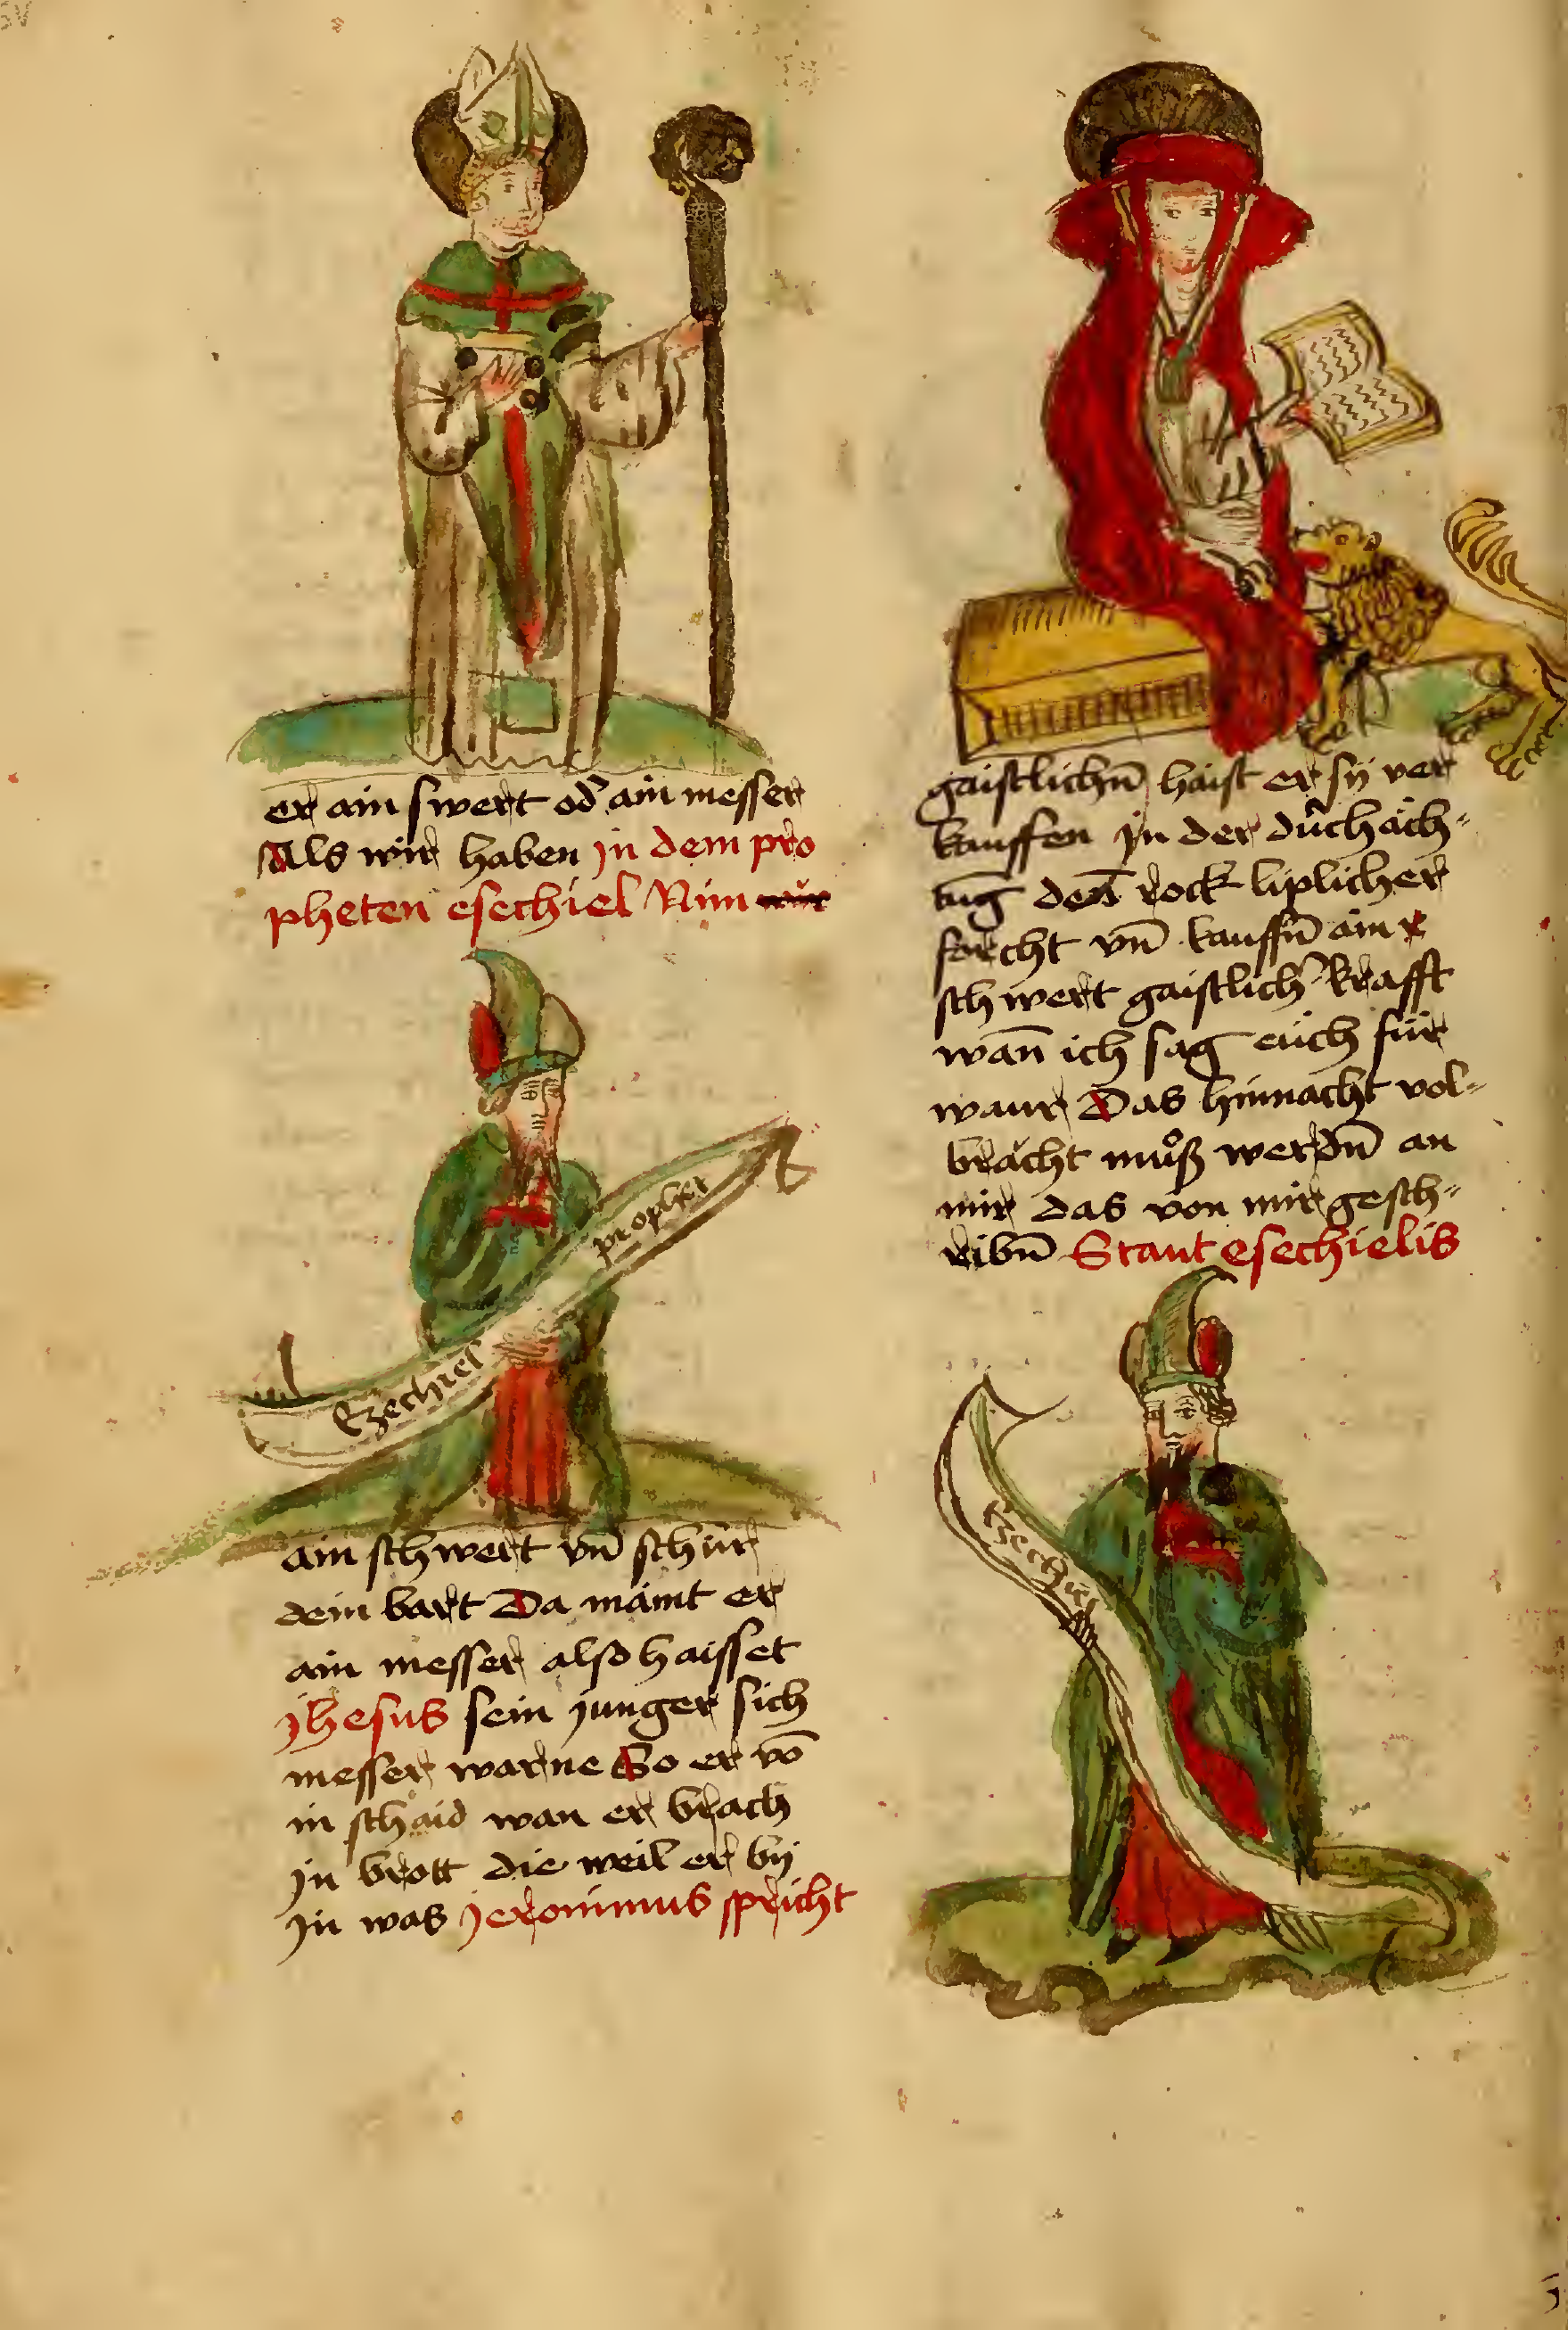 er ain swert od̉ ain messer
Als wir haben jn dem pro
pheten esechiel Nim
Ezechiel prophet
ain schwert vn̄ schir
dein bart Da maint er
ain messer also haisset
jhesus sein junger sich
messer warne So er vō
in schaid wan er brach
jn brott die weil er bÿ
jn was jeronimus spricht
gaistlichn̄ haist er sÿ ver
kauffen jn der durchäch-
tung den rock liplicher
forcht vn̄ kauffn̄ ain
schwert gaistlich̉ krafft
wan̄ ich sag euch für
waur Das hinnacht vol-
bracht muͦß werdn̄ an
mir das von mir gesch-
ribn̄ Staut esechielis
Ezechiel